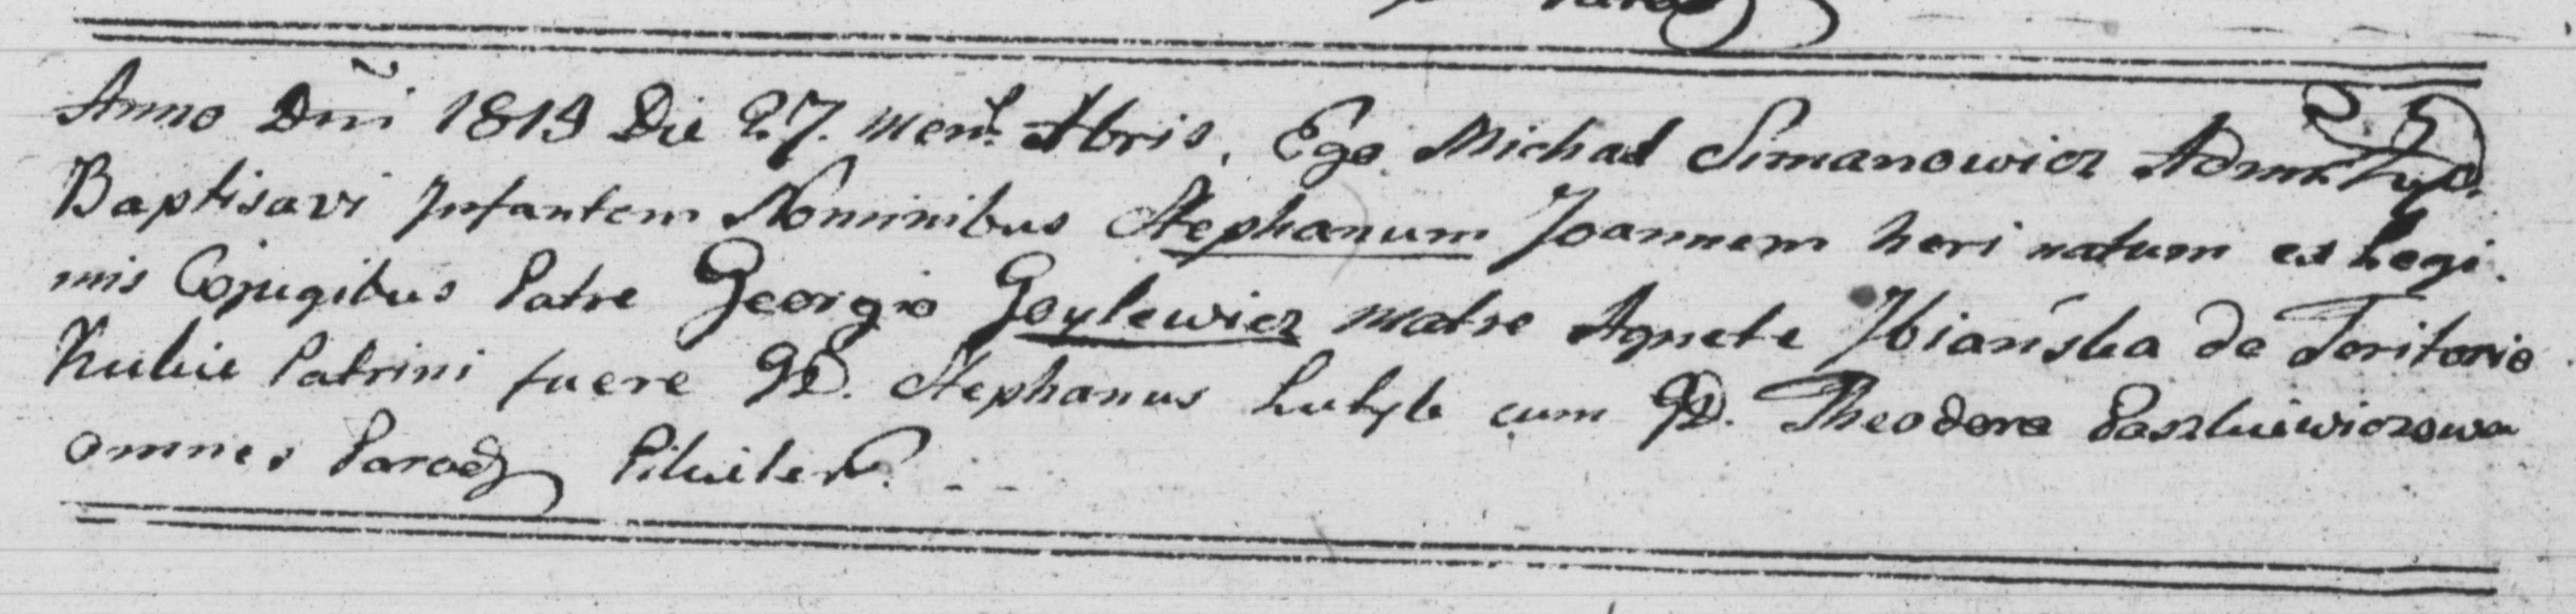 Anno Dni 1819 Die 27. mens. Xbris, Ego Michael Simanowicz
Baptisavi Infantem Nominibus Stephanum Joannem heri natum ex Legi.
mis Cojugibus Patre Georgio Goylewicz matre Agnete Jbiańska de Teritorio
Kukie Patrini fuere GD. Stephanus Lutyk cum GD. Theodora Paszkiewiczowa
omnes Paroch